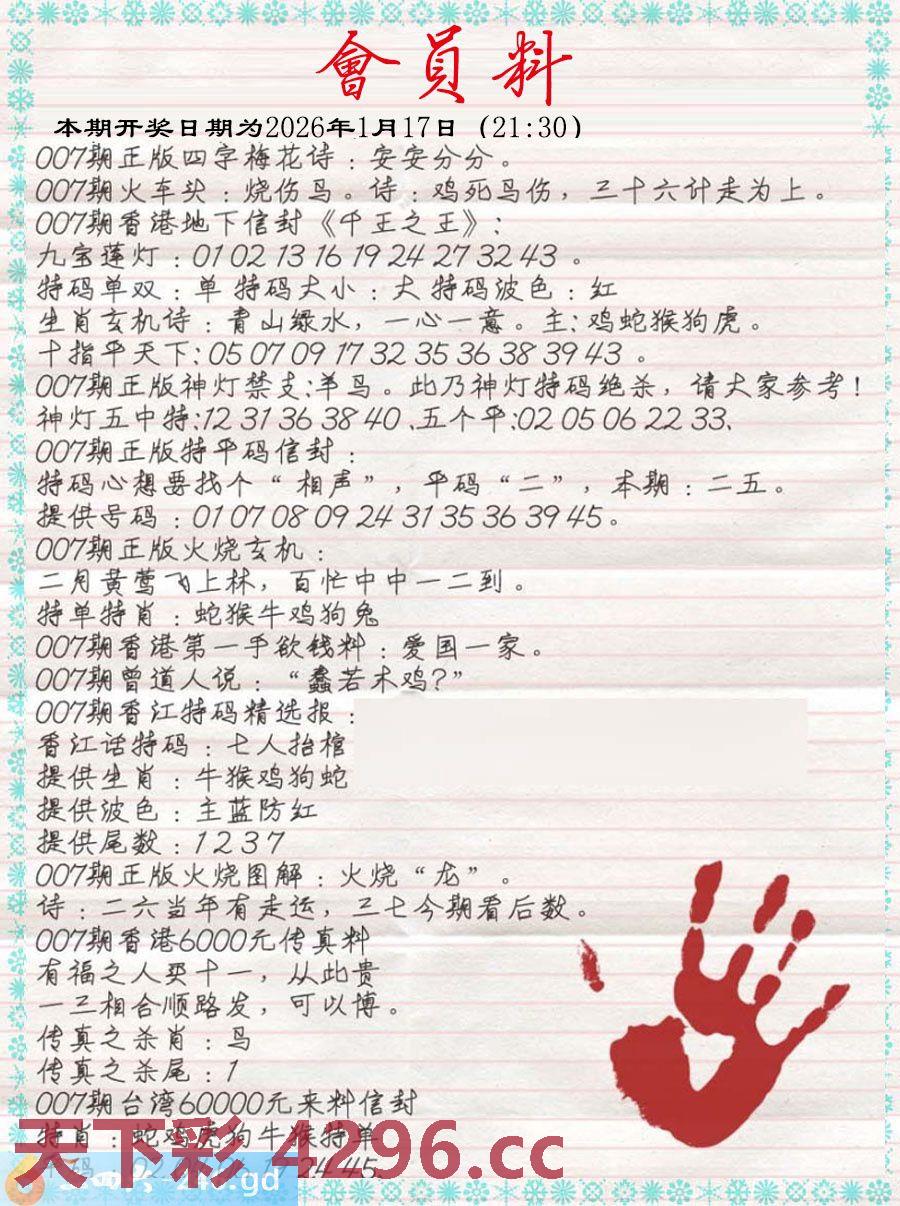 會員料
本期开奖日期为2026年1月17日（21:30）
007期正版四字梅花诗：安安分分。
007期火车头：烧伤鸟。诗：鸡死鸟伤，三十六计走为上。
007期香港地下信封《千王之王》：
九宝莲灯：01 02 13 16 19 24 27 32 43 。
特码单双：单 特码大小：大 特码波色：红
生肖玄机诗：青山绿水，一心一意。主：鸡蛇猴狗虎。
十指平天下：05 07 09 17 32 35 36 38 39 43 。
007期正版神灯禁支:羊鸟。此乃神灯特码绝杀，请大家参考！
神灯五中特:12 31 36 38 40 、五个平:02 05 06 22 33、
007期正版特平码信封：
特码心想要找个“相声”，平码“二”，本期：二五。
提供号码：01 07 08 09 24 31 35 36 39 45。
007期正版火烧玄机：
二月黄莺飞上林，百忙中中一二到。
特单特肖：蛇猴牛鸡狗兔
007期香港第一手欲钱料：爱国一家。
007期曾道人说：“蠢若木鸡?”
007期香江特码精选报：
香江话特码：七人抬棺
提供生肖：牛猴鸡狗蛇
提供波色：主蓝防红
提供尾数：1 2 3 7
007期正版火烧图解：火烧“龙”。
诗：二六当年有走运，三七今期看后数。
007期香港6000元传真料
有福之人买十一，从此贵
一三相合顺路发，可以博。
传真之杀肖：鸟
传真之杀尾：1
007期台湾60000元来料信封
特肖：蛇鸡虎狗牛猴特单
天下彩 4296.cc
24 45
.gd